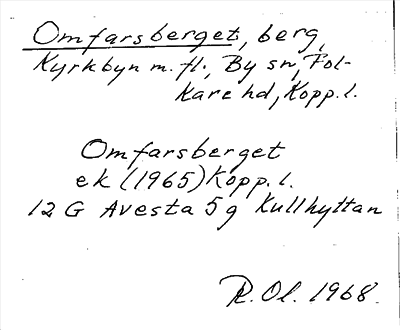 Omfarsberget, berg,
Kyrkbyn m. fl., By sn, Fol-
kare hd, Kopp. l.
Omfarsberget
ek (1965) Kopp. l.
12 G Avesta 5g Kullhyttan
R. Ol. 1968.